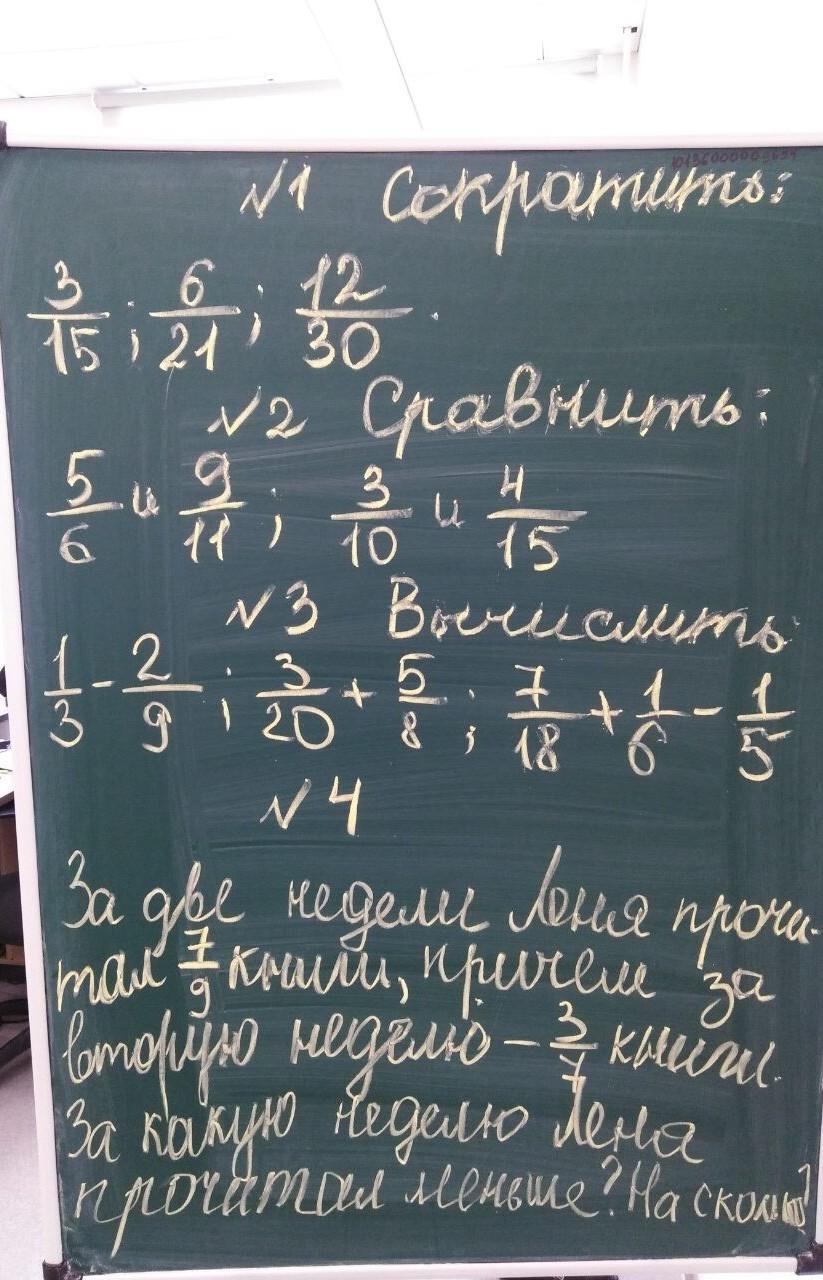 №1 Сократить:
3/15; 6/21; 12/30.
№2 Сравнить:
5/6 и 9/11; 3/10 и 4/15
№3 Вычислить
1/3 - 2/9; 3/20 + 5/8; 7/18 + 1/6 - 1/5
№4
За две недели Лёня прочи-
тал 7/9 книги, причем за
вторую неделю – 3/7 книги.
За какую неделю Лёня
прочитал меньше? На сколько?